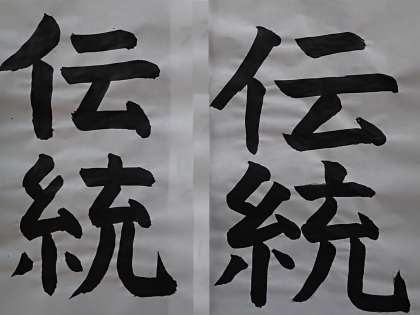 伝統
伝統